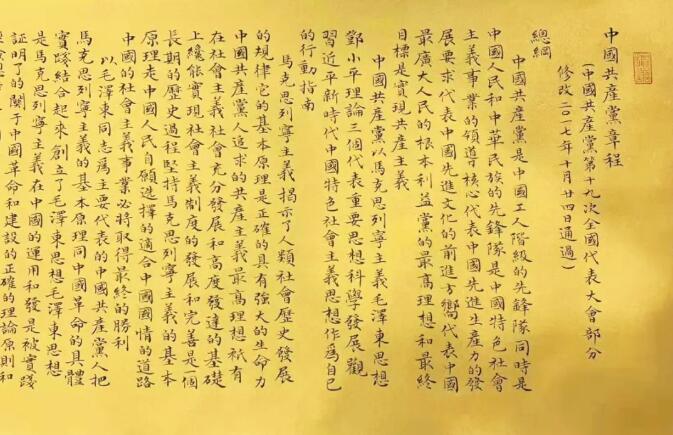 中國共產黨章程
(中國共產黨第十九次全國代表大會部分
修改二〇一七年十月廿四日通過)
總綱
中國共產黨是中國工人階級的先鋒隊同時是
中國人民和中華民族的先鋒隊是中國特色社會
主義事業的領導核心代表中國先進生產力的發
展要求代表中國先進文化的前進方嚮代表中國
最廣大人民的根本利益黨的最高理想和最終
目標是實現共產主義
中國共產黨以馬克思列寧主義毛澤東思想
鄧小平理論三個代表重要思想科學發展觀
習近平新時代中國特色社會主義思想作爲自己
的行動指南
馬克思列寧主義揭示了人類社會歷史發展
的規律它的基本原理是正確的具有強大的生命力
中國共產黨人追求的共產主義最高理想衹有
在社會主義社會充分發展和高度發達的基礎
上纔能實現社會主義制度的發展和完善是一個
長期的歷史過程堅持馬克思列寧主義的基本
原理走中國人民自願選擇的適合中國國情的道路
中國的社會主義事業必將取得最終的勝利
以毛澤東同志爲主要代表的中國共產黨人把
馬克思列寧主義的基本原理同中國革命的具體
實踐結合起來創立了毛澤東思想毛澤東思想
是馬克思列寧主義在中國的運用和發是被實踐
證明了的關于中國革命和建設的正確的理論原則和